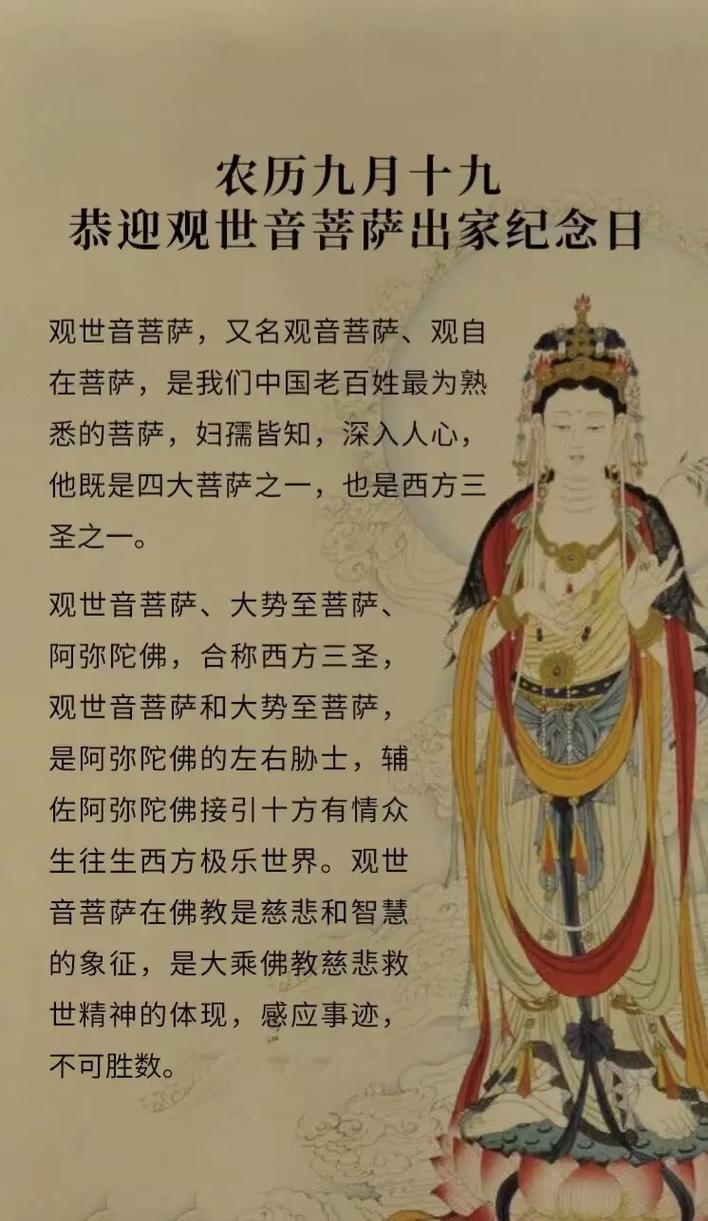 农历九月十九
恭迎观世音菩萨出家纪念日
观世音菩萨，又名观音菩萨、观自
在菩萨，是我们中国老百姓最为熟
悉的菩萨，妇孺皆知，深入人心，
他既是四大菩萨之一，也是西方三
圣之一。
观世音菩萨、大势至菩萨、
阿弥陀佛，合称西方三圣，
观世音菩萨和大势至菩萨，
是阿弥陀佛的左右胁士，辅
佐阿弥陀佛接引十方有情众
生往生西方极乐世界。观世
音菩萨在佛教是慈悲和智慧
的象征，是大乘佛教慈悲救
世精神的体现，感应事迹，
不可胜数。